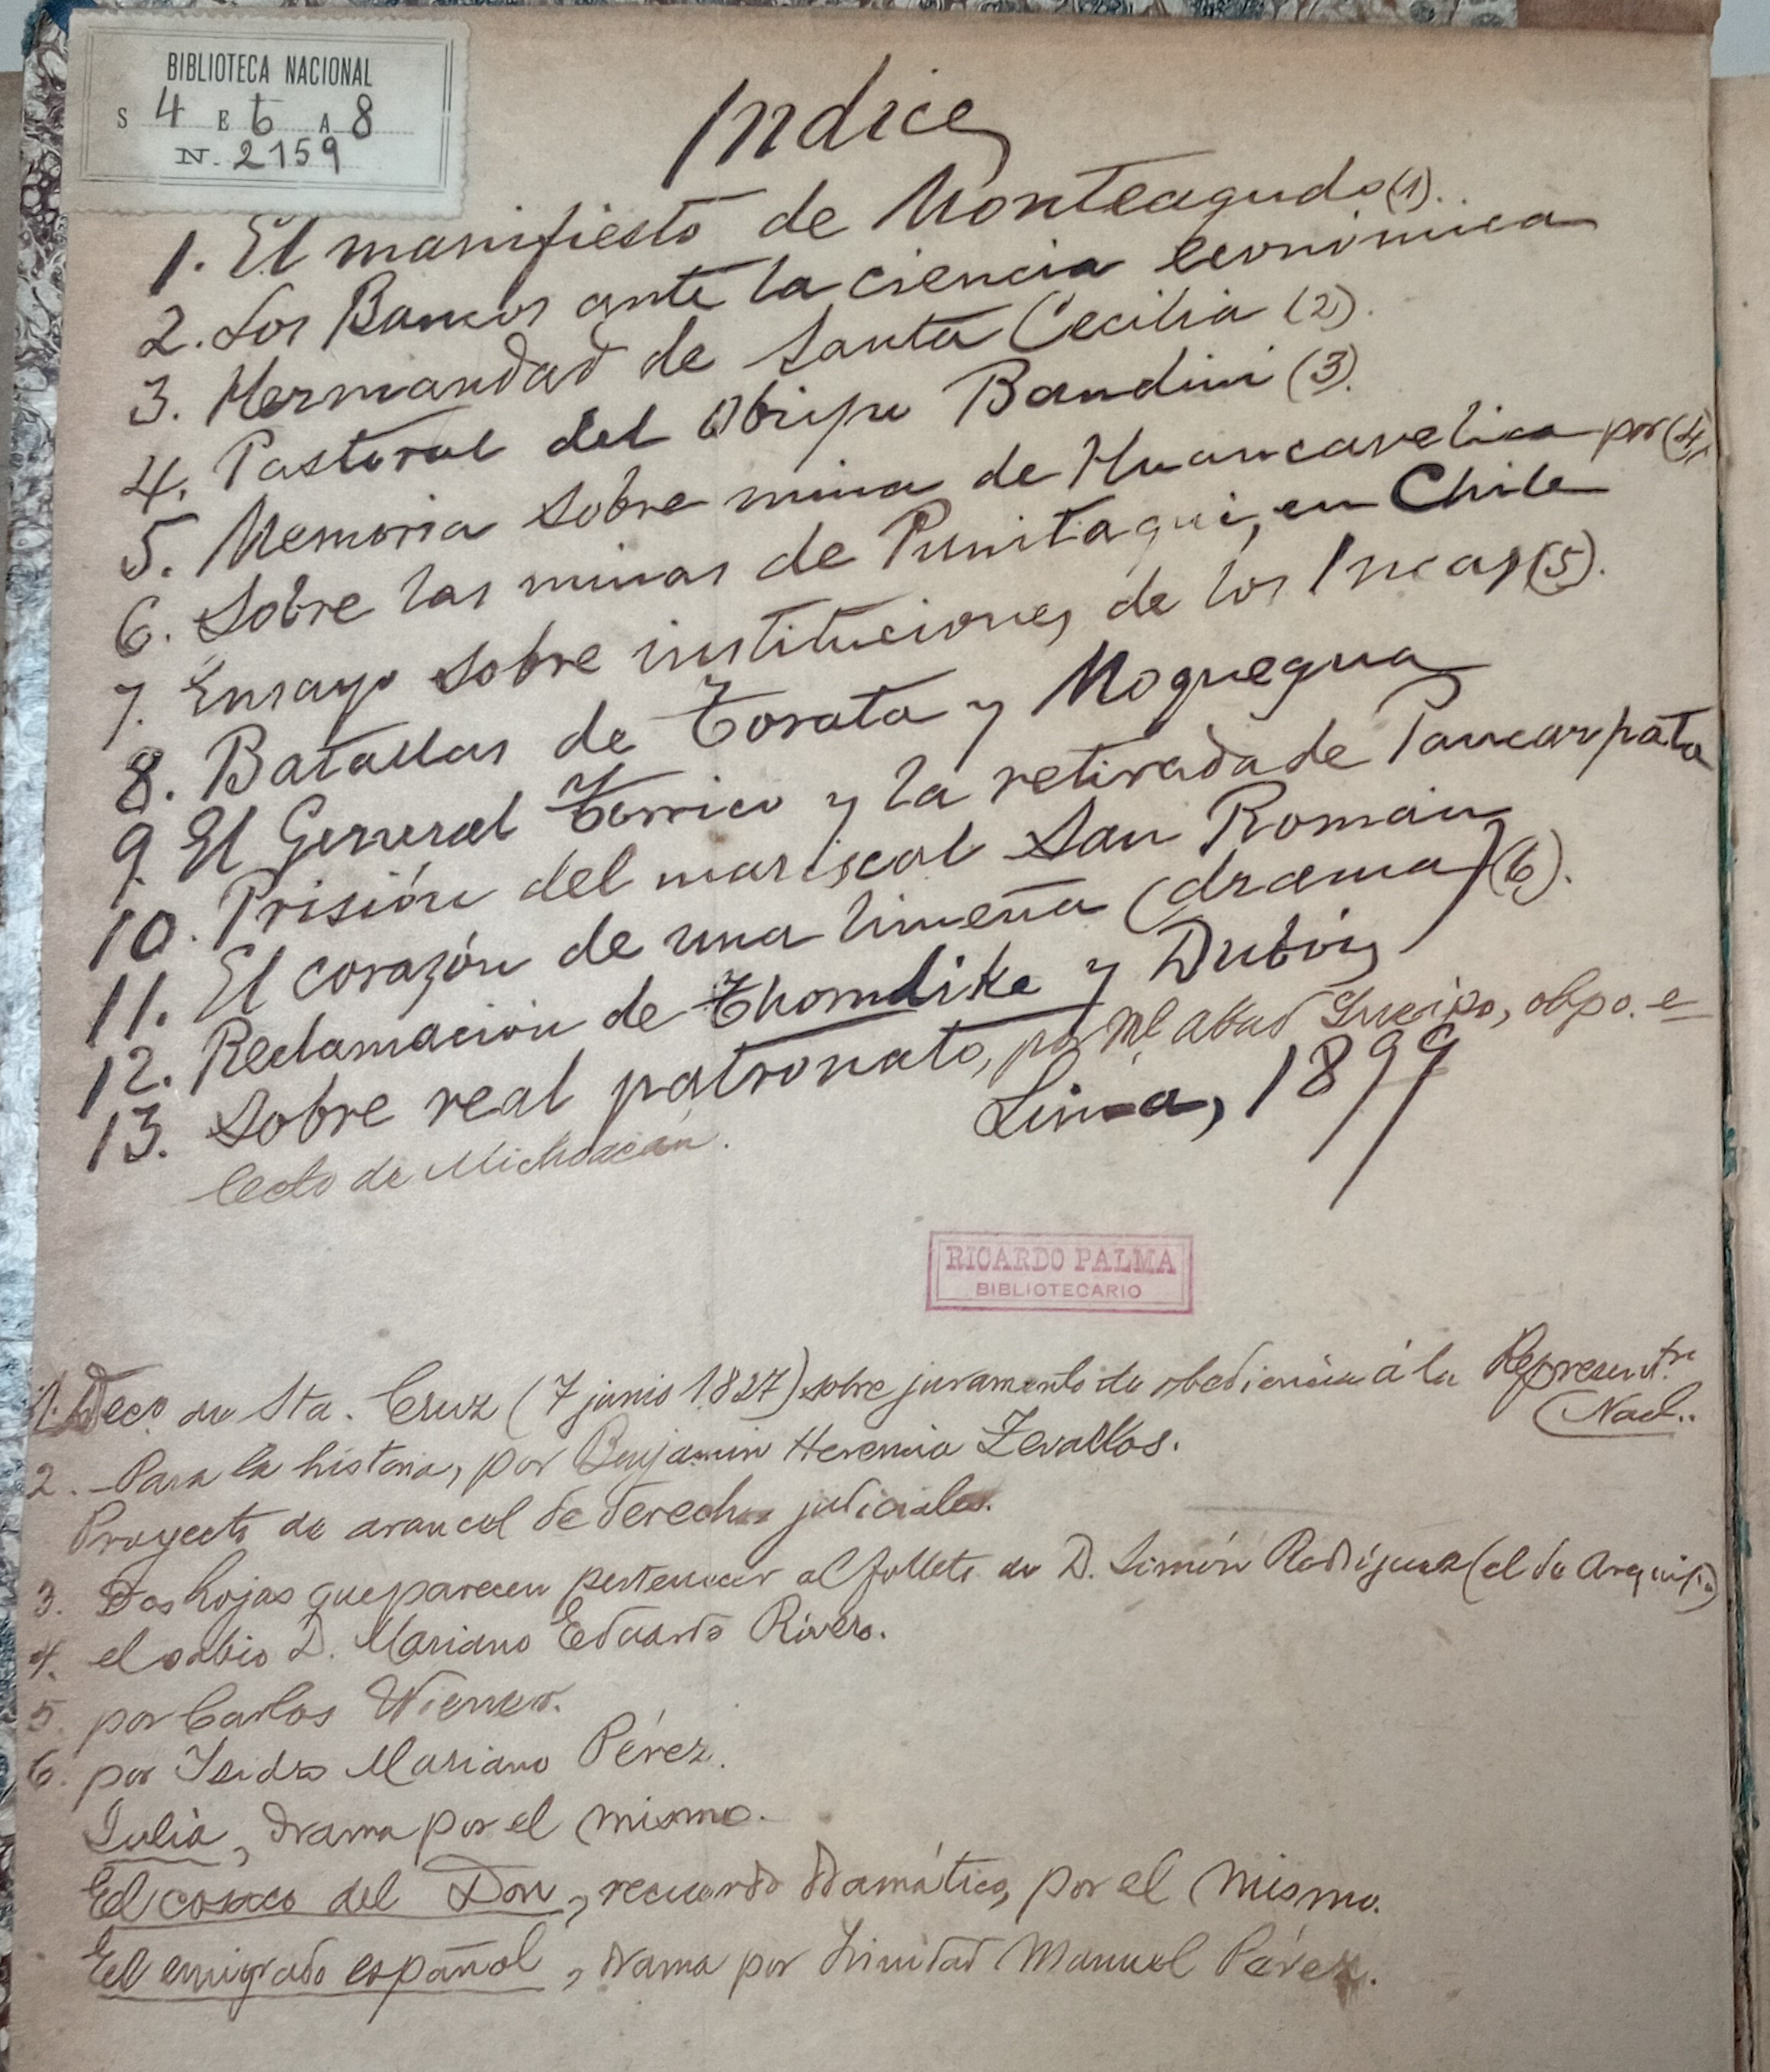 BIBLIOTECA NACIONAL
S 4 E 6 A 8
N. 2159
Indice
1. El manifiesto de Monteagudo (1).
2. Los Bancos ante la ciencia económica
3. Hermandad de Santa Cecilia (2).
4. Pastoral del Obispo Bandini (3).
5. Memoria sobre mina de Huancavelica por (4)
6. Sobre las minas de Punitaqui, en Chile
7. Ensayo sobre instituciones de los Incas (5).
8. Batallas de Torata y Moquegua
9. El General Torrico y la retirada de Paucarpata
10. Prisión del mariscal San Román
11. El corazón de una limeña (drama) (6).
12. Reclamación de Thorndike y Dubois
13. Sobre real patronato, por Ml. Abad Queipo, obpo. e-
lecto de Michoacán.
Lima, 1899
RICARDO PALMA
BIBLIOTECARIO
1. Deco. de Sta. Cruz (7 junio 1827) sobre juramento de obediencia á la Represent.
Nacl..
2. Para la historia, por Benjamin Herencia Zevallos.
Proyecto de arancel de derechos judiciales.
3. Dos hojas que parecen pertenecer al folleto de D. Simón Rodríguez (el de Arequipa)
4. el sabio D. Mariano Eduardo Rivero.
5. por Carlos Wiener.
6. por Isidro Mariano Pérez.
Julia, drama por el mismo.
El cosaco del Don, recuerdo dramático, por el mismo.
El emigrado español, drama por Trinidad Manuel Pérez.